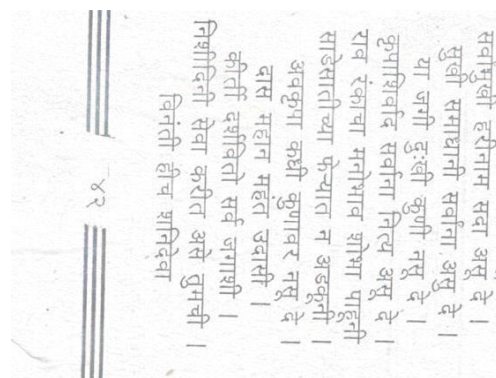 सर्वामुखी हरीनाम सदा असू दे ।
सुखी समाधानी सर्वांना असू दे ।
या जगी दुःखी कुणी नसू दे ।
कृपाशिर्वाद सर्वांना नित्य असू दे ।
राव रंकाचा मनोभाव शोभा पाहूनी
साडेसातीच्या फेऱ्यात न अडकूनी ।
अवकृपा कधी कुणावर नसू दे ।
दास महान महंत उदासी ।
कीर्ती दर्शविते सर्व जगाशी ।
निशीदिनी सेवा करीत असे तुमची ।
विनंती हीच शनिदेवा
४२